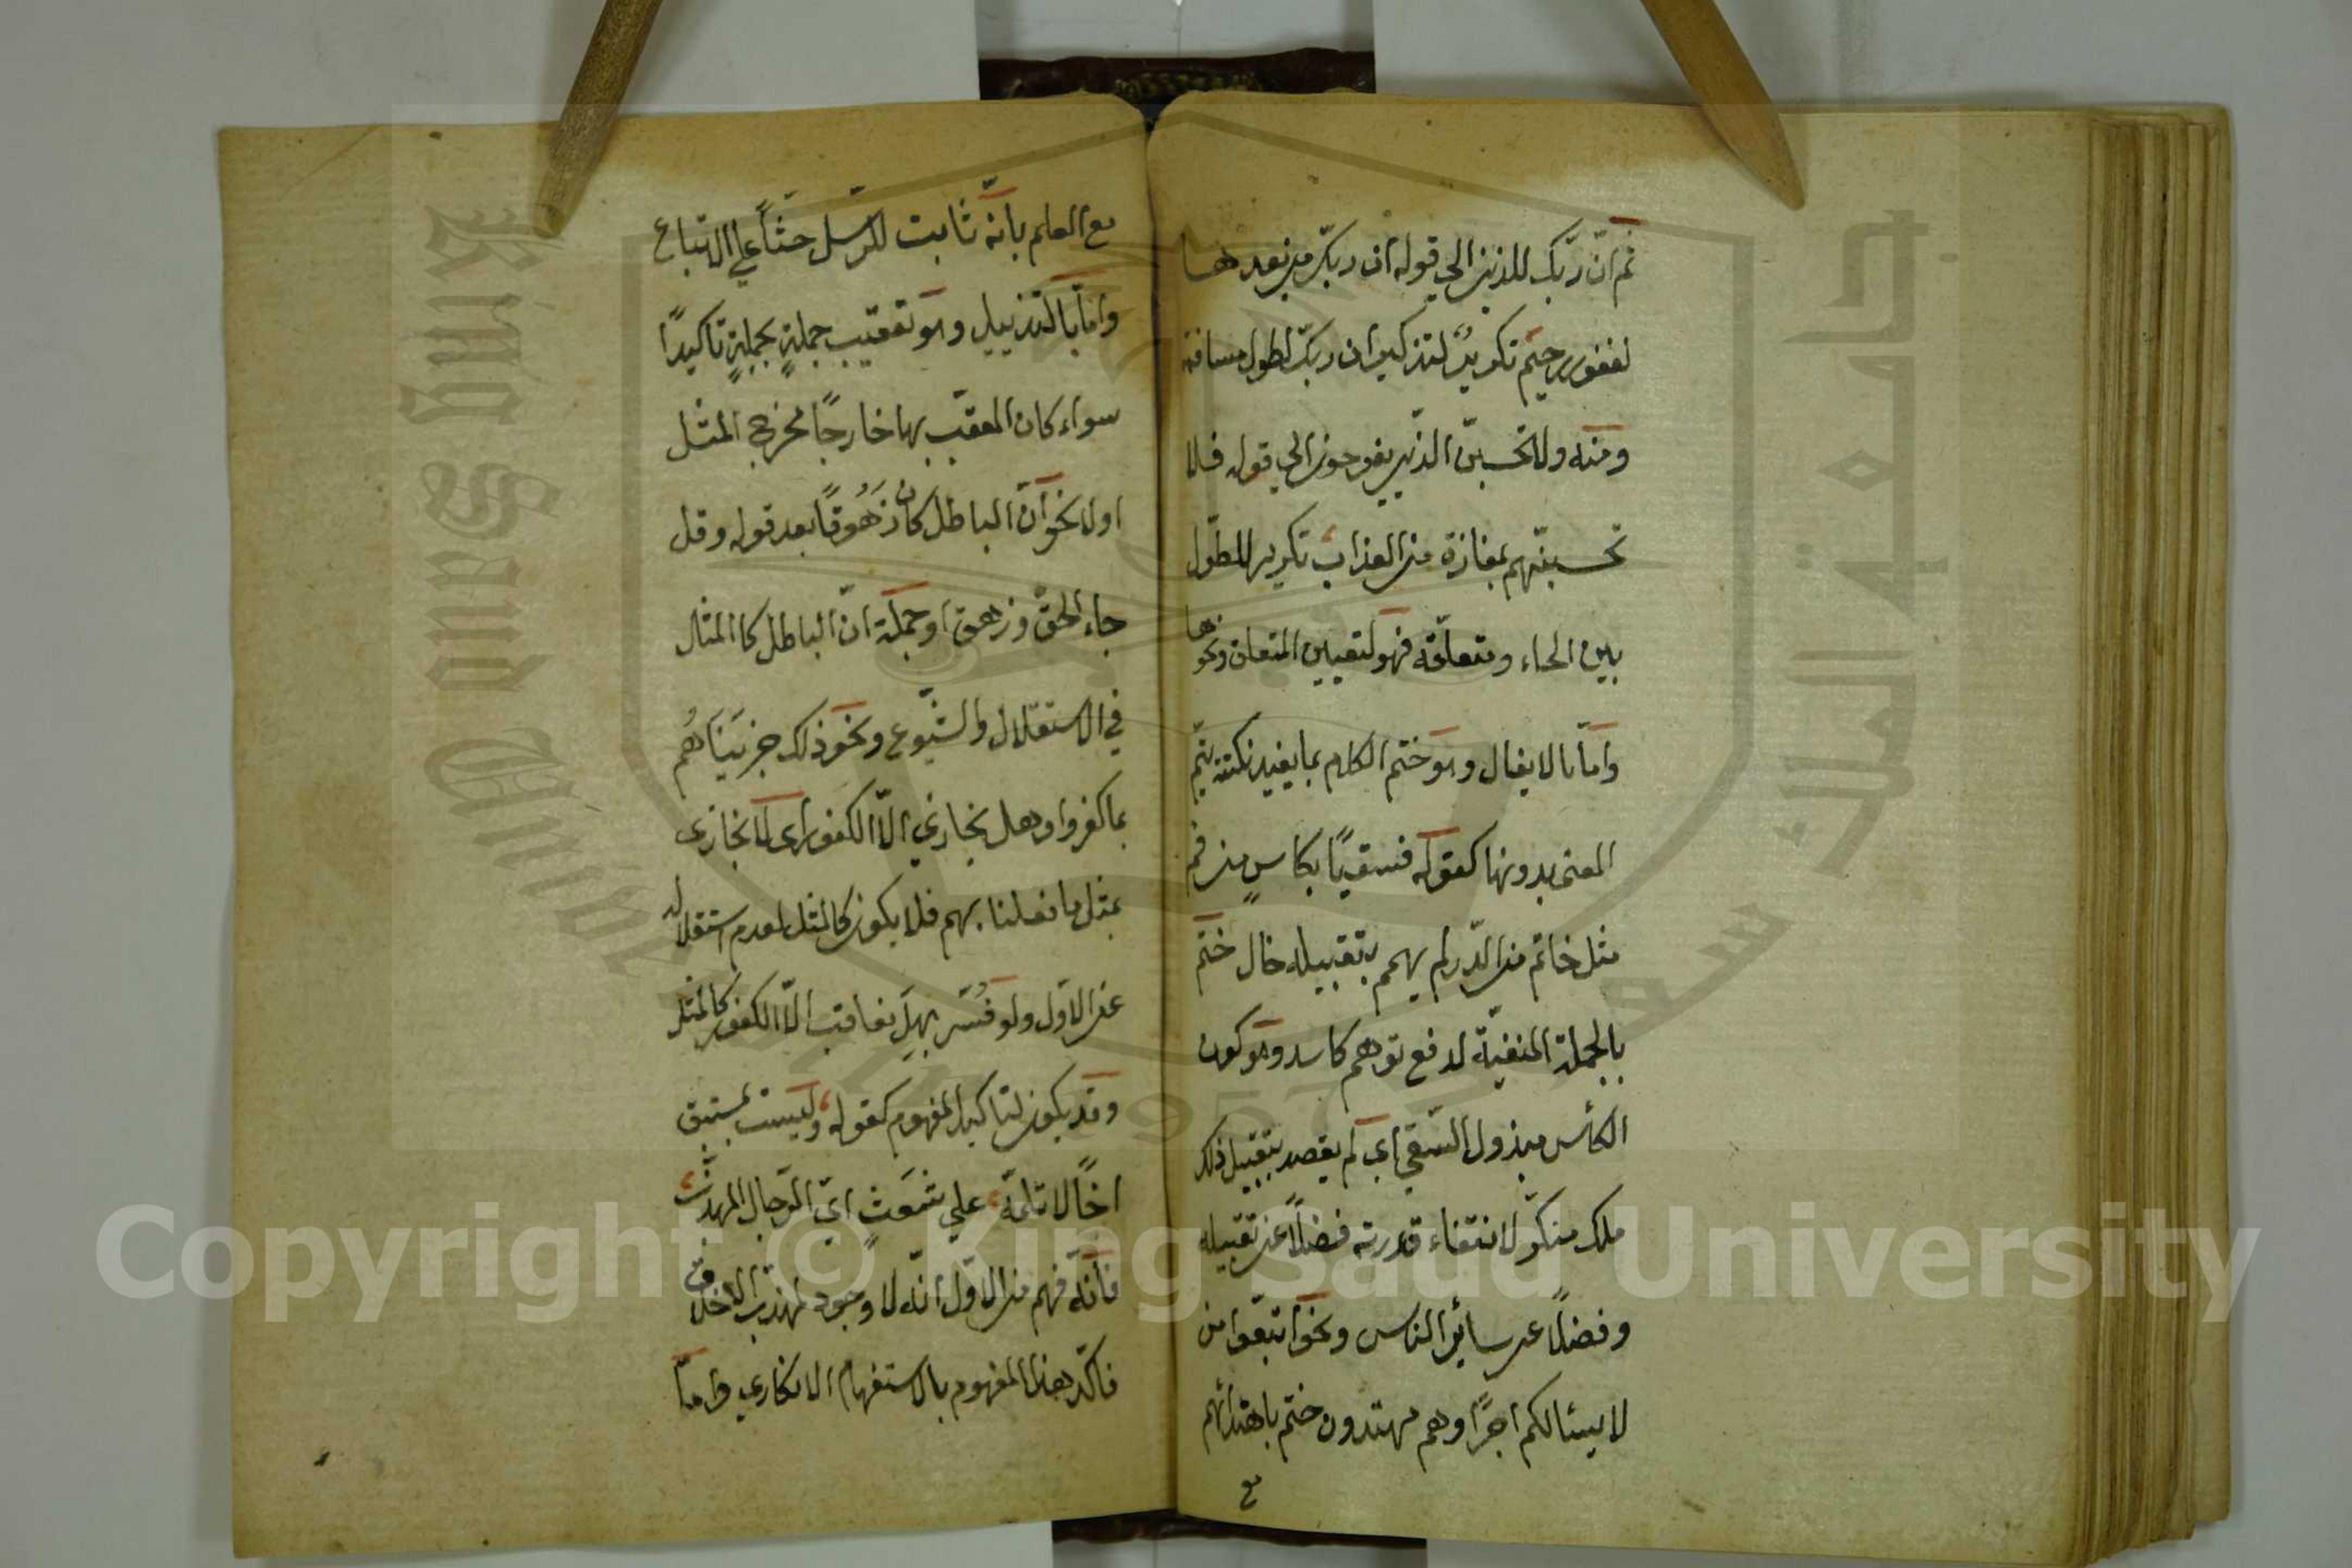 ثم انّ ربّك للذين الي قوله ان ربّك من بعدها
لغفور رحيم تكريرٌ لتذكير ان ربّك لطول مسافة
ومنه ولا تحسبنّ الذين يفرحون الي قوله فلا
تحسبنّهم بمفازة من العذاب تكرير لطول
بين الحاء ومتعلّقه فهو لتعيين المتعلق ونحوها
وامّا بالايغال وهو ختم الكلام بما يفيد نكتة يتمّ
المعنى بدونها كقوله فسقيًا بكاسٍ من فم
مثل خاتم من الدّر لم يهمم بتقبيله خال ختم
بالجملة المنفيّة لدفع توهم كاسد وهو كون
الكأس مبذول السّقي اي لم يقصد بتقبيل ذلك
ملك متكبّر لانتفاء قدرته فضلًا عن تقبيله
وفضلًا عن سائر الناس ونحو اتبعوا من
لا يسئالكم اجرًا وهم مهتدون ختم باهتدائهم
مع
مع العلم بانّه ثابت للرّسل حثّاً علي الاتباع
وامّا بالتذييل وهو تعقيب جملةٍ بجملةٍ تاكيدًا
سواء كان المعقّب بها خارجًا مخرج المثل
اولا نحو انّ الباطل كان زَهُوقًا بعد قوله وقل
جاء الحقّ وزهق او جملة انّ الباطل كا المثال
في الاستقلال والشّيوع ونحو ذلك جزيناهُم
بما كفروا وهل نجازي الّا الكفور اي لا نجازى
بمثل ما فعلنا بهم فلا يكون كالمثل لعدم استقلاله
عن الاوّل ولو فُسّر بهل نعاقب الّا الكفور كالمثل
وقد يكون لتاكيد المفهوم كقوله ولست بمستبق
اخًا لا تلمّه علي شَعَثٍ ايّ الرّجال المهذّب
فانّه فهم من الاوّل انّه لا وجود لمهذّب الاخلاق
فاكّد هذا المفهوم بالاستفهام الانكاري وامّا
Copyright © King Saud University
King Saud University
جامعة الملك سعود
1957